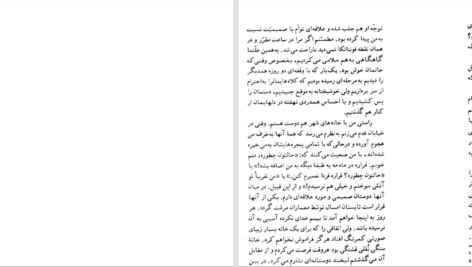 توجّه او هم جلب شده و علاقه‌ای توأم با صمیمیّت نسبت
به‌من پیدا کرده بود. مطمئنم اگر مرا در ساعت مقرّر و در
همان نقطه فونتانکا نمی‌دید ناراحت می‌شد. به‌همین علّت‌ما
گاهگاهی به‌هم سلامی می‌کردیم، بخصوص وقتی‌که
حالمان خوش بود. یک‌بار که با وقفه‌ای دو روزه همدیگر
را دیدیم به‌مرحله‌ای رسیده بودیم که کلاه‌هایمانرا به‌احترام
از سر برداریم ولی خوشبختانه به‌موقع جنبیدیم، دستمان را
پس کشیدیم و با احساس همدردی نهفته در دلهایمان از
کنار هم گذشتیم.
راستی من با خانه‌های شهر هم دوست هستم. وقتی در
خیابان قدم می‌زنم به‌نظرم می‌رسد که همهٔ آنها به‌طرف من
هجوم آورده و درحالی‌که با تمامی پنجره‌هایشان به‌من خیره
شده‌اند، با من صحبت می‌کنند که: «حالتون چطوره، منم
خوبم. قراره در ماه مه یه طبقهٔ دیگه به من اضافه بشه!» یا
«حالتون چطوره؟ قراره فردا تعمیرم کنن.» یا «من تقریباً تو
آتش سوختم و خیلی هم ترسیدم!» و از این قبیل. در میان
آنها دوستان صمیمی و مورد علاقه‌ای دارم. یکی از آنها
قرار است تابستان امسال توسّط معماران مرمّت گردد. هر
روز به اینجا خواهم آمد تا ببینم خدای نکرده آسیبی به آن
نرسیده باشد. ولی اتفاقی را که برای یک خانه بسیار زیبای
صورتی کمرنگ افتاد هرگز فراموش نخواهم کرد. خانهٔ
سنگی نُقلی قشنگی بود هروقت فرصت می‌کردم و از مقابل
آن می‌گذشتم لبخند دوستانه‌ای نثارم می‌کرد. در بین